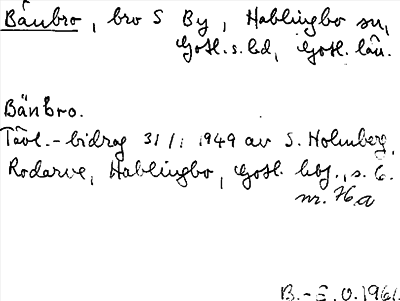 Bänbro, bro S By, Hablingbo sn,
Gotl. s. hd, Gotl. län.
Bänbro.
Tävl.-bidrag 31/1 1949 av S. Holmberg,
Rodarve, Hablingbo, Gotl. hbg., s. 6.
nr. 76a
B.-E. O. 1961.